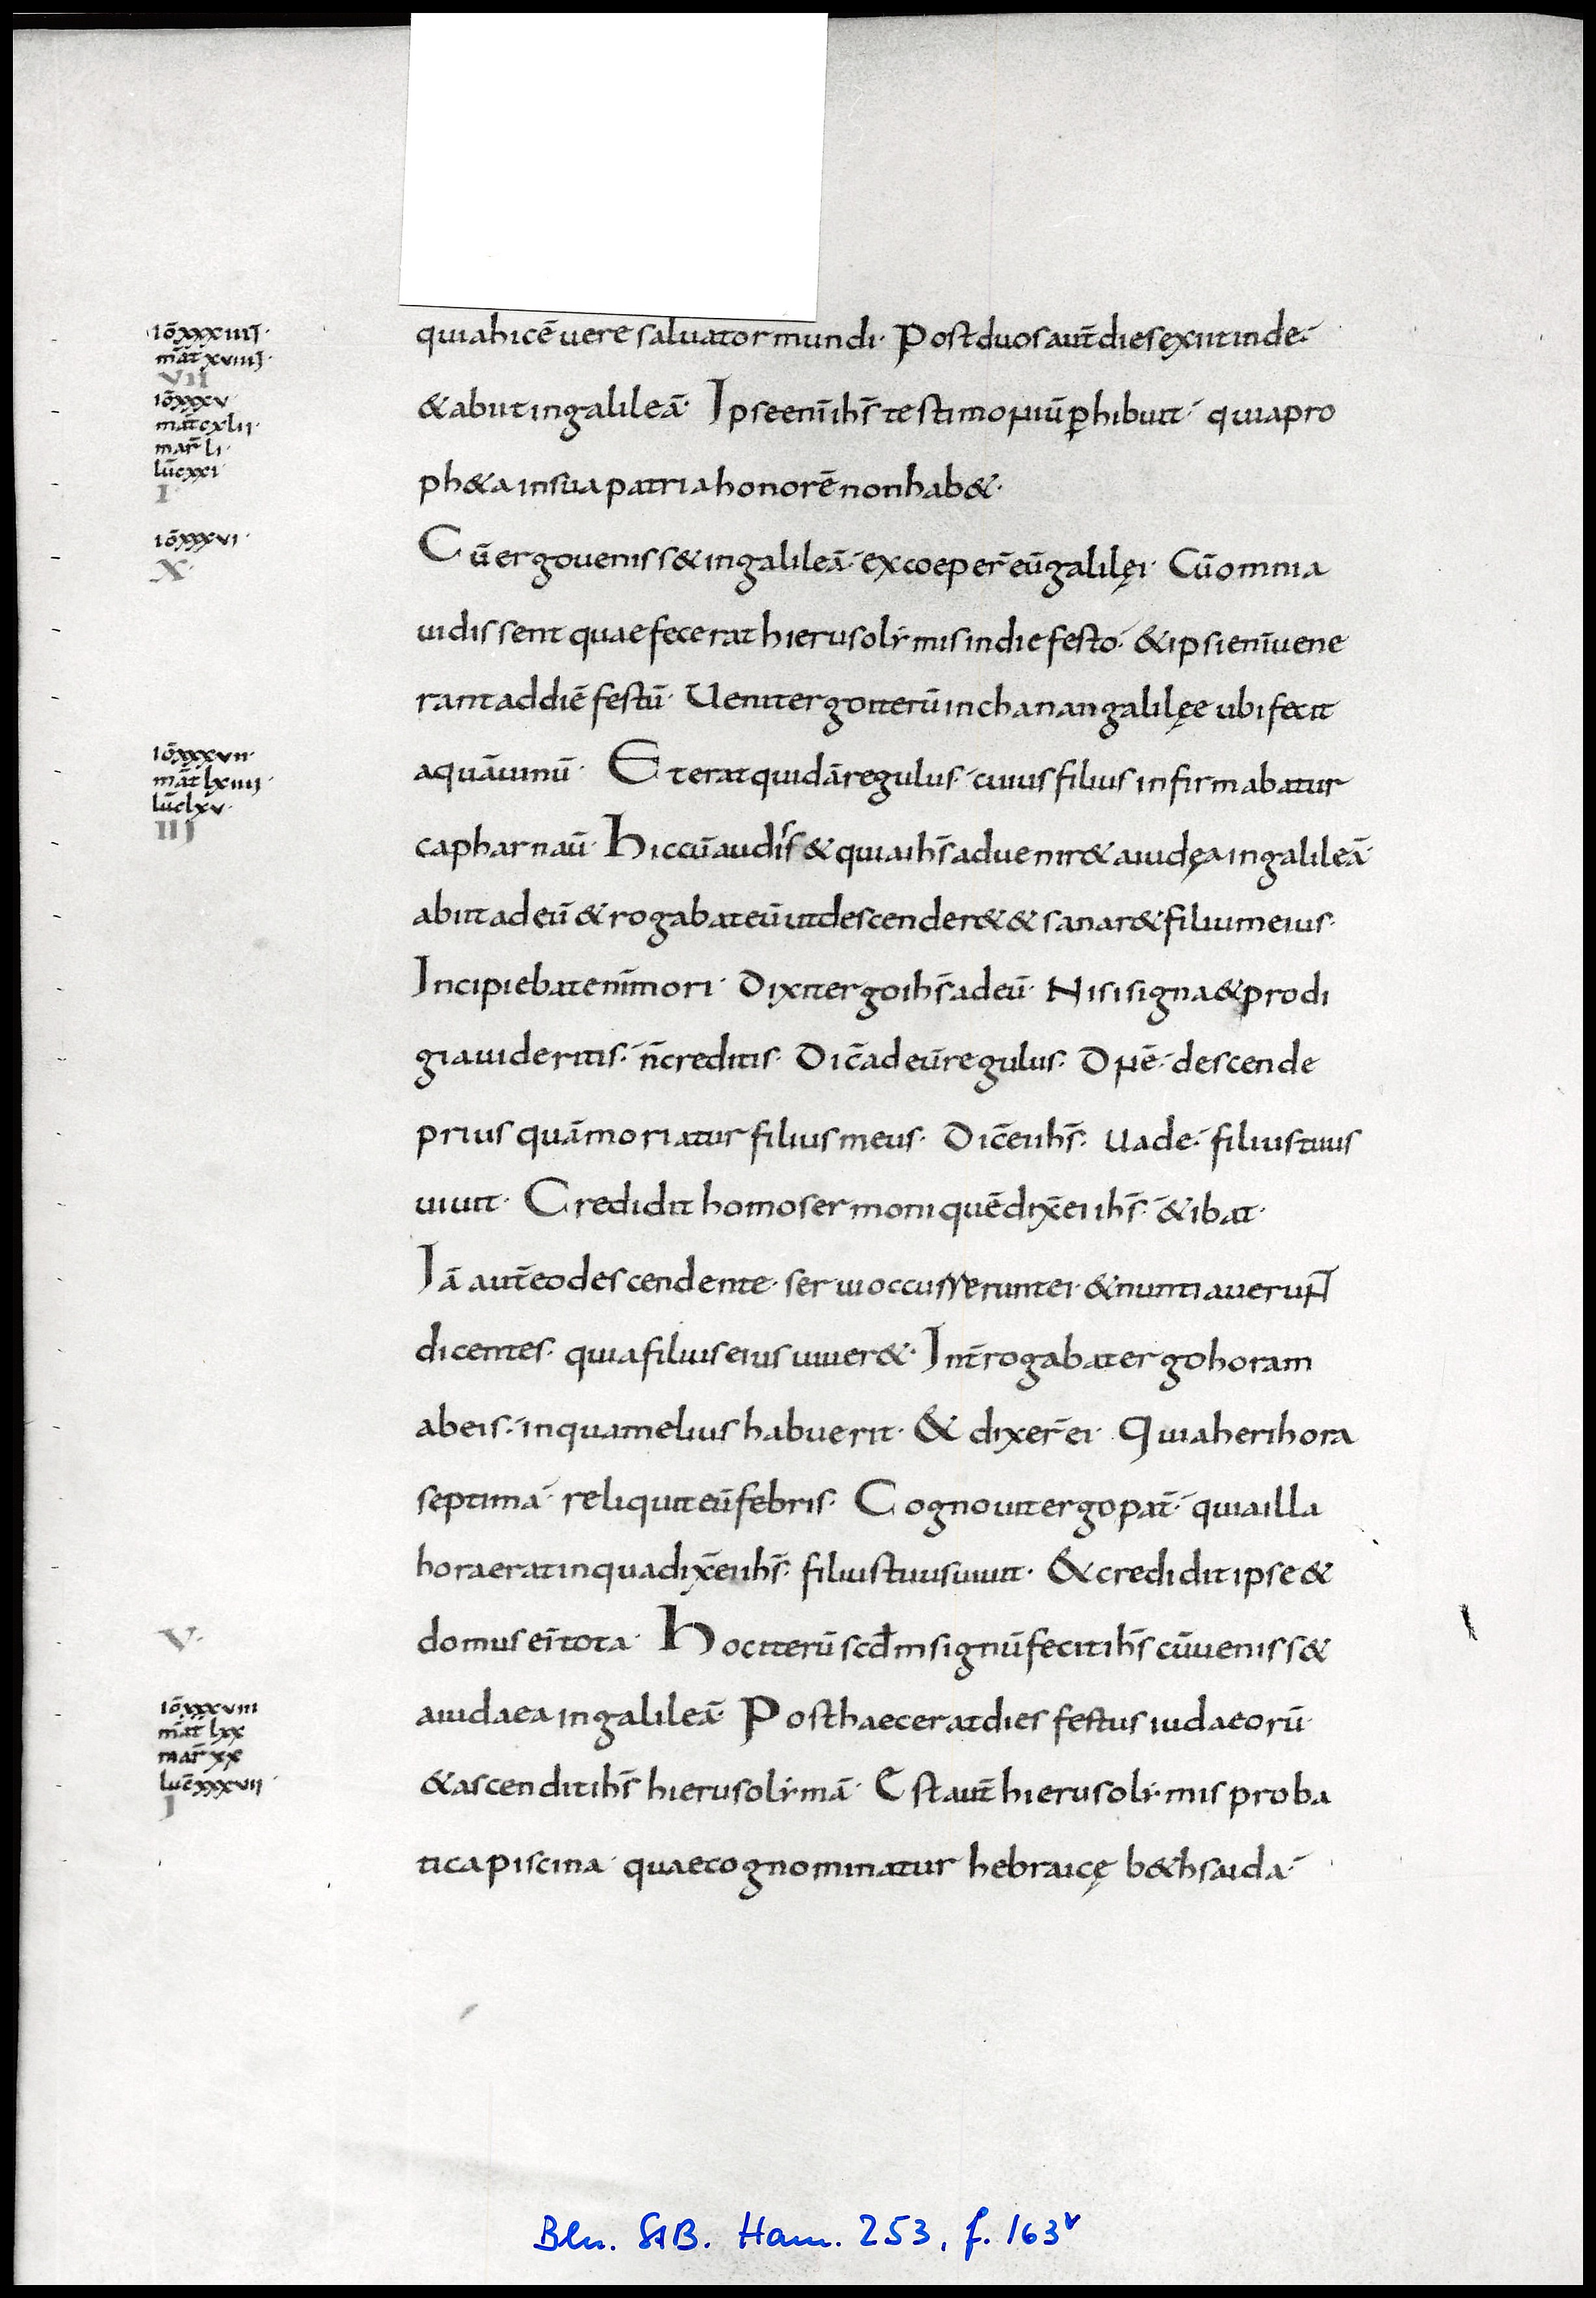 iōxxxiiij·
māt xviiij·
VII
iōxxxv
māt cxlii·
mar̄ li·
lūc xxi·
I
iōxxxvi·
X·
iōxxxvii·
māt lxiiij·
lūc lxv·
IIJ
V·
iōxxxviii
māt lxx
mar̄ xx
luc̄ xxxvii·
J
quia hic ē uere saluator mundi· Post duos aut̄ dies exiit inde·
& abiit in galileā· Ipse enī ihs̄ testimoniū ꝑhibuit· quia pro
ph&a in sua patria honorē non hab&·
Cū ergo ueniss& in galileā· excoeper̄ eū galilęi· Cū omnia
uidissent quae fecerat hierusolymis in die festo· & ipsi enī uene
rant ad diē festū· Uenit ergo iterū in chanan galilęe ubi fecit
aquā uinū· Et erat quidā regulus· cuius filius infirmabatur
capharnaū· Hic cū audis& quia ihs̄ aduenir& a iudęa in galileā·
abiit ad eū & rogabat eū ut descender& & sanar& filium eius·
Incipiebat enī mori· Dixit ergo ihs̄ ad eū· Nisi signa & prodi
gia uideritis· n̄ creditis· Dic̄ ad eū regulus· Dn̄e· descende
prius quā moriatur filius meus· Dic̄ ei ihs̄· Uade· filius tuus
uiuit· Credidit homo sermoni quē dix̄ ei ihs̄· & ibat·
Iā aut̄ eo descendente· serui occurrerunt ei· & nuntiauerunt
dicentes· quia filius eius uiuer&· Int̄rogabat ergo horam
ab eis· in qua melius habuerit· & dixer̄ ei· Quia heri hora
septima· reliquit eū febris· Cognouit ergo pat̄· quia illa
hora erat in qua dix̄ ei ihs̄· filius tuus uiuit· & credidit ipse &
domus ei' tota· Hoc iterū scd̄m signū fecit ihs̄ cū ueniss&
a iudaea in galileā· Post haec erat dies festus iudaeorū·
& ascendit ihs̄ hierusolymā· Est aut̄ hierusolymis proba
tica piscina· quae cognominatur hebraicę b&hsaida·
Bln. StB. Ham. 253, f. 163v